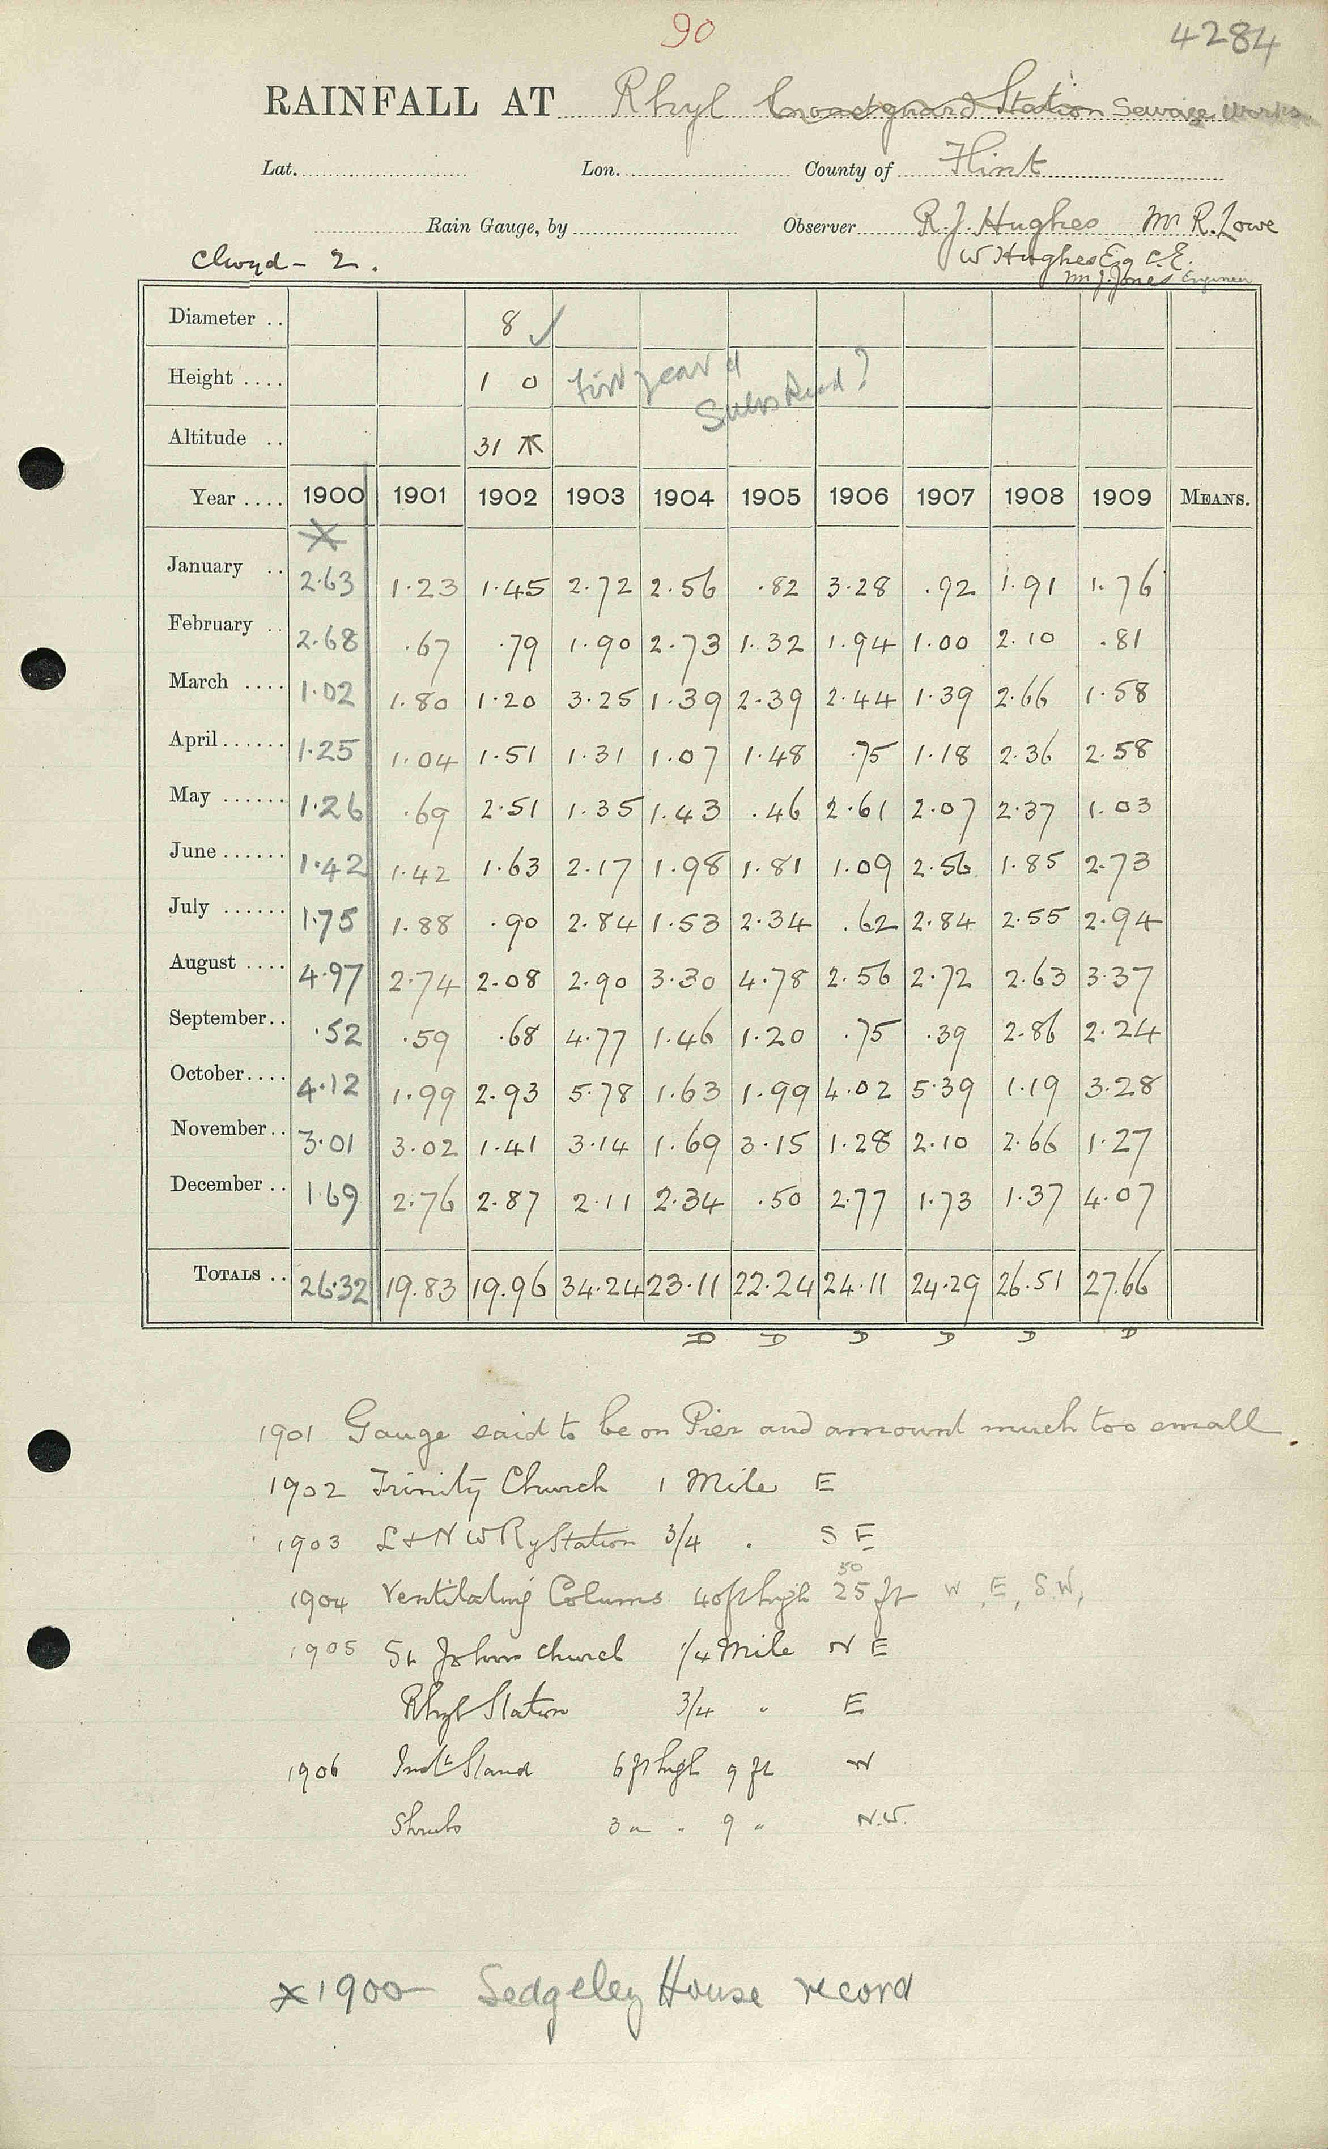 90
4284
RAINFALL AT Rhyl Coastguard Station Sewage Works
Lat. Lon. County of Flint
Rain Gauge, by Observer R. J. Hughes Mr R. Lowe
Clwyd - 2. W Hughes Esq C.E.
Mr J. Jones Engineer
Diameter .. 8 ✓
Height .... 1 0 First year of
Subs Read ?
Altitude .. 31
Year .... 1900 1901 1902 1903 1904 1905 1906 1907 1908 1909 MEANS.
X
January .. 2.63 1.23 1.45 2.72 2.56 .82 3.28 .92 1.91 1.76
February .. 2.68 .67 .79 1.90 2.73 1.32 1.94 1.00 2.10 .81
March .... 1.02 1.80 1.20 3.25 1.39 2.39 2.44 1.39 2.66 1.58
April ...... 1.25 1.04 1.51 1.31 1.07 1.48 .75 1.18 2.36 2.58
May ...... 1.26 .69 2.51 1.35 1.43 .46 2.61 2.07 2.37 1.03
June ...... 1.42 1.42 1.63 2.17 1.98 1.81 1.09 2.56 1.85 2.73
July ...... 1.75 1.88 .90 2.84 1.53 2.34 .62 2.84 2.55 2.94
August .... 4.97 2.74 2.08 2.90 3.30 4.78 2.56 2.72 2.63 3.37
September .. .52 .59 .68 4.77 1.46 1.20 .75 .39 2.86 2.24
October .... 4.12 1.99 2.93 5.78 1.63 1.99 4.02 5.39 1.19 3.28
November .. 3.01 3.02 1.41 3.14 1.69 3.15 1.28 2.10 2.66 1.27
December .. 1.69 2.76 2.87 2.11 2.34 .50 2.77 1.73 1.37 4.07
TOTALS .. 26.32 19.83 19.96 34.24 23.11 22.24 24.11 24.29 26.51 27.66
D D D D D D
1901 Gauge said to be on Pier and amount much too small.
1902 Trinity Church 1 Mile E
1903 L & N W Ry Station 3/4 " S E
50
1904 Ventilating Colums 40ft high 25 ft W, E, S.W,
1905 St Johns Church 1/4 Mile N E
Rhyl Station 3/4 " E
1906 Inst Stand 6 ft high 9 ft W
Shrubs 3 " " 9 " N.W.
X 1900 - Sedgeley House record